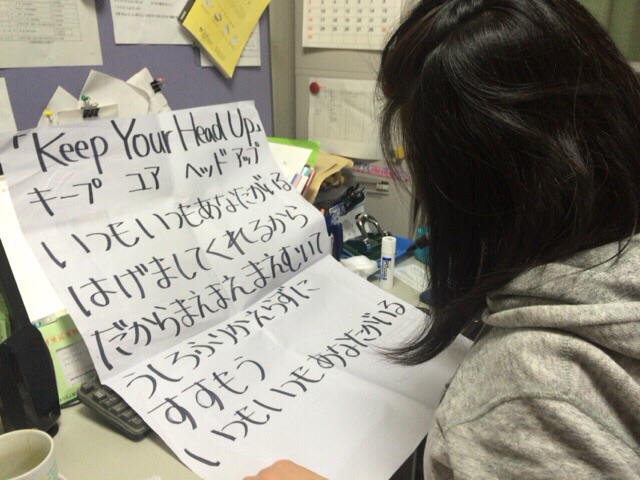 「Keep Your Head Up」
キープ ユア ヘッド アップ
いつもいつもあなたがいる
はげましてくれるから
だからまえまえまえむいて
うしろふりかえらずに
すすもう
いつもいつもあなたがいる